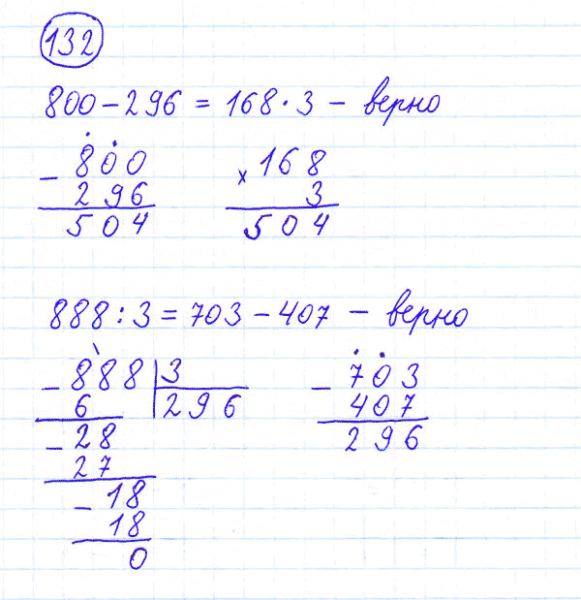 132
800 - 296 = 168 · 3 - верно
- 800
296
504
× 168
3
504
888 : 3 = 703 - 407 - верно
- 888 | 3
6 296
- 28
27
- 18
18
0
- 703
407
296